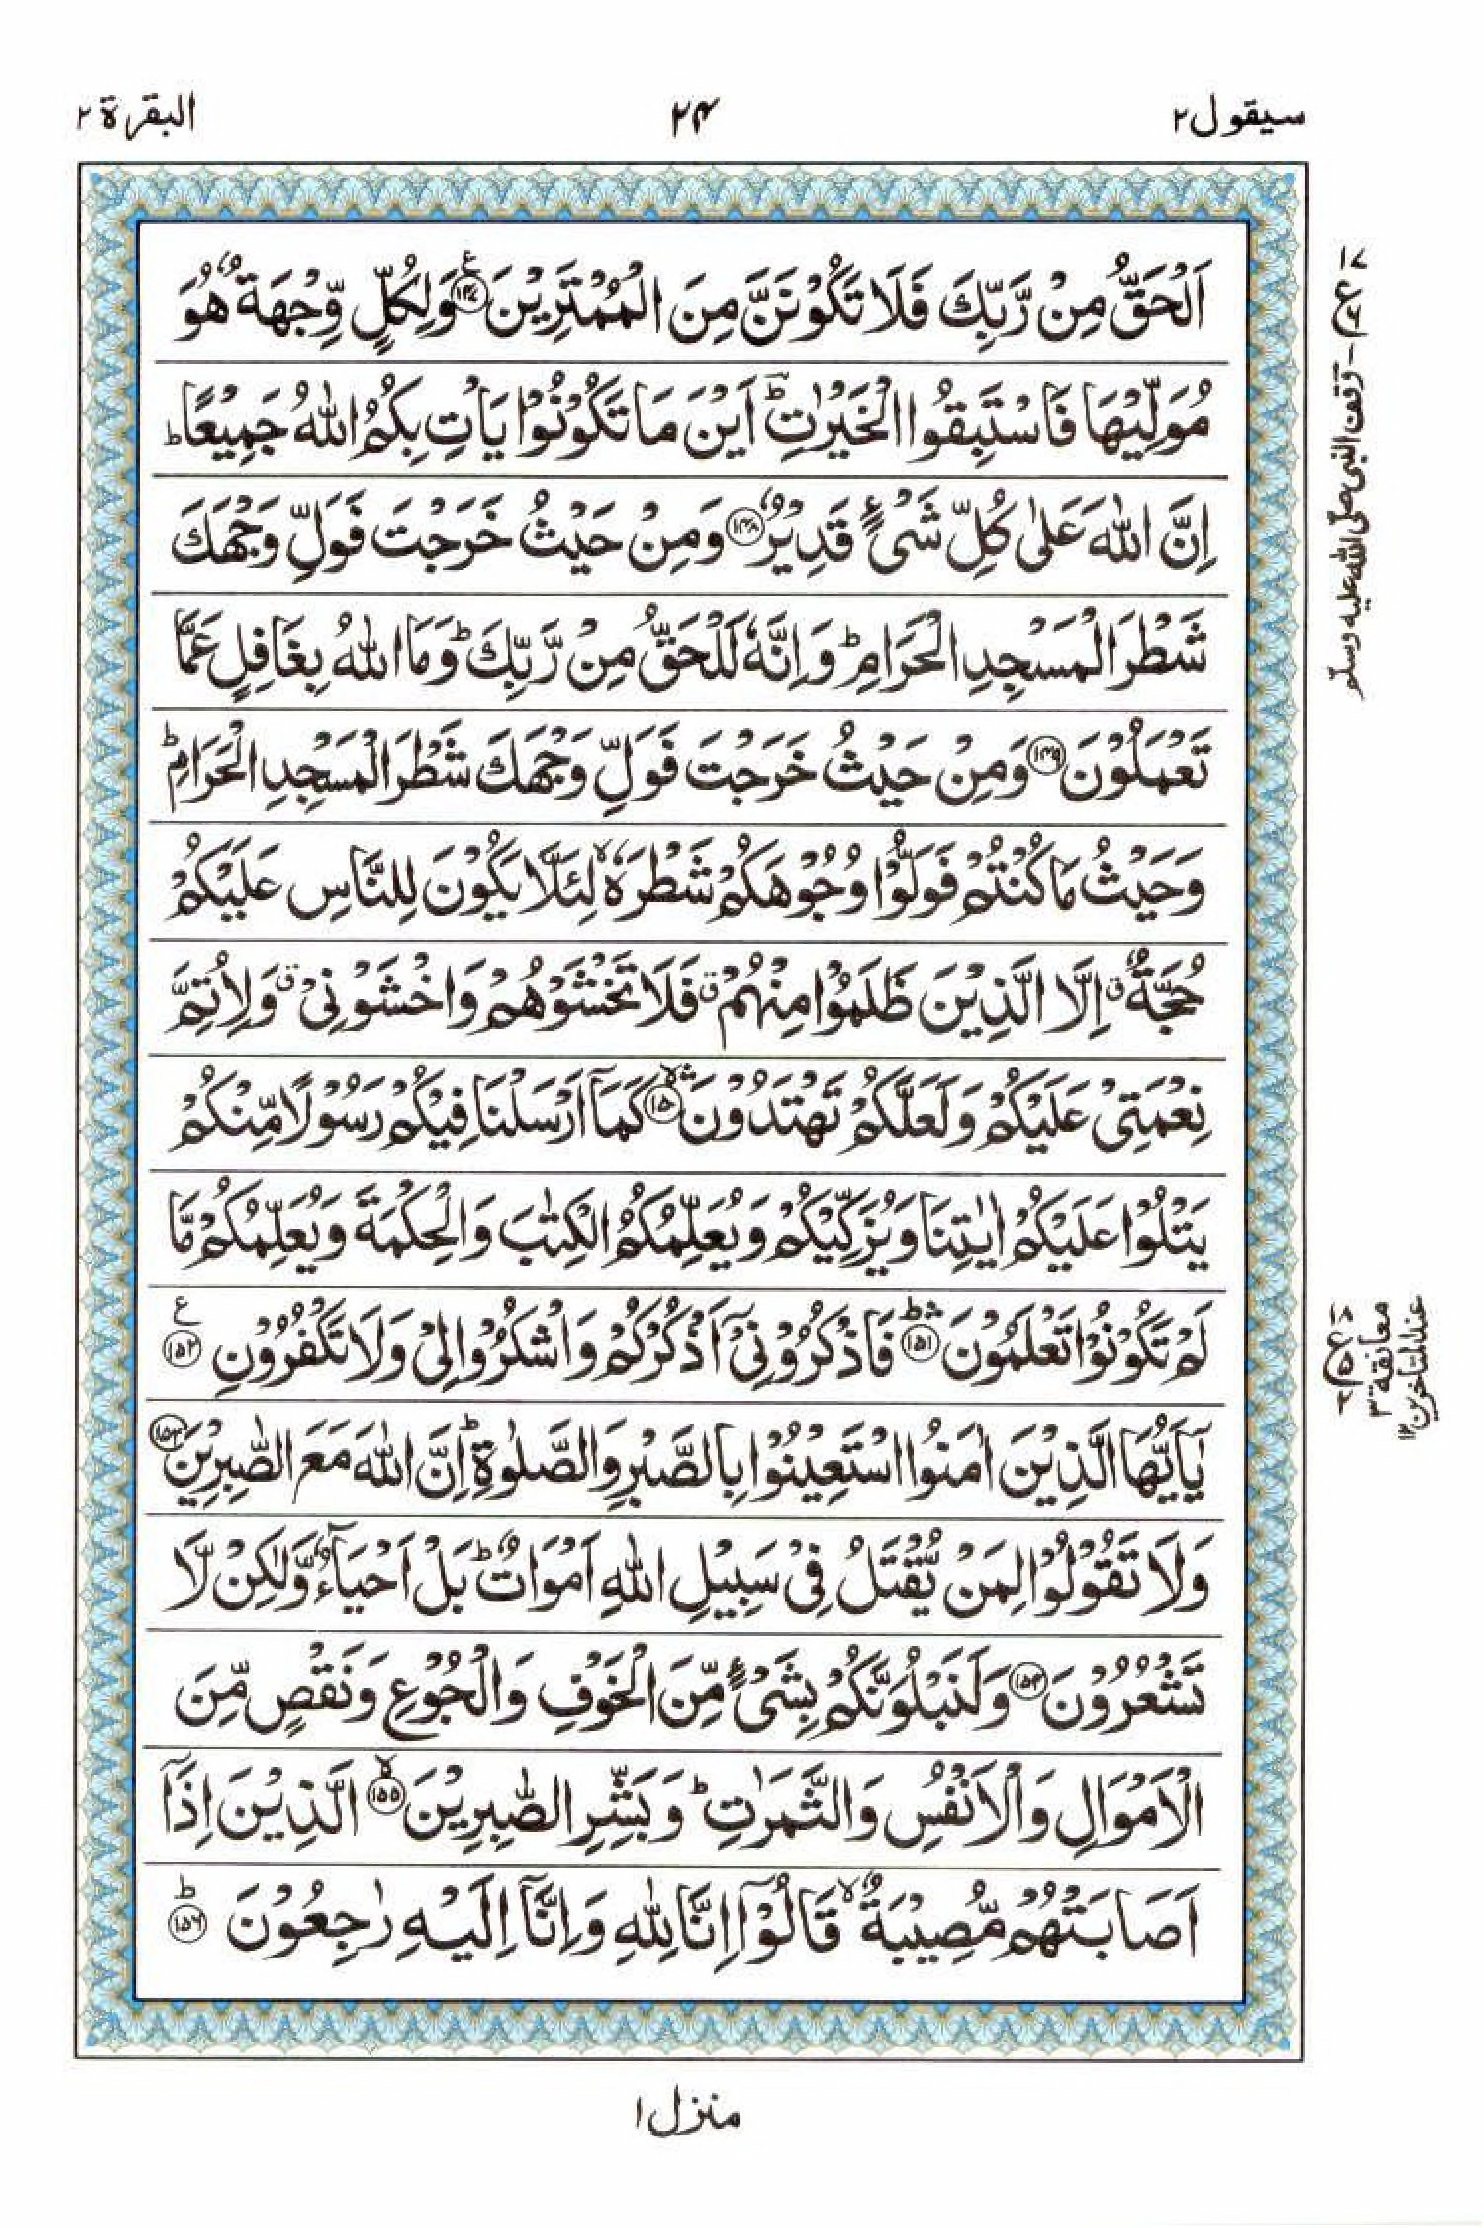 سيقول ٢
٢٤
البقرة ٢
اَلْحَقُّ مِنْ رَّبِّكَ فَلَا تَكُوْنَنَّ مِنَ الْمُمْتَرِيْنَ ﴿١٤٧﴾ ع وَلِكُلٍّ وِّجْهَةٌ هُوَ
مُوَلِّيْهَا فَاسْتَبِقُوا الْخَيْرٰتِ ؕ اَيْنَ مَا تَكُوْنُوْا يَاْتِ بِكُمُ اللّٰهُ جَمِيْعًا ؕ
اِنَّ اللّٰهَ عَلٰى كُلِّ شَىْءٍ قَدِيْرٌ ﴿١٤٨﴾ وَمِنْ حَيْثُ خَرَجْتَ فَوَلِّ وَجْهَكَ
شَطْرَ الْمَسْجِدِ الْحَرَامِ ؕ وَاِنَّهٗ لَلْحَقُّ مِنْ رَّبِّكَ ؕ وَمَا اللّٰهُ بِغَافِلٍ عَمَّا
تَعْمَلُوْنَ ﴿١٤٩﴾ وَمِنْ حَيْثُ خَرَجْتَ فَوَلِّ وَجْهَكَ شَطْرَ الْمَسْجِدِ الْحَرَامِ ؕ
وَحَيْثُ مَا كُنْتُمْ فَوَلُّوْا وُجُوْهَكُمْ شَطْرَهٗ ۙ لِئَلَّا يَكُوْنَ لِلنَّاسِ عَلَيْكُمْ
حُجَّةٌ ق اِلَّا الَّذِيْنَ ظَلَمُوْا مِنْهُمْ ق فَلَا تَخْشَوْهُمْ وَاخْشَوْنِىْ ق وَلِاُتِمَّ
نِعْمَتِىْ عَلَيْكُمْ وَلَعَلَّكُمْ تَهْتَدُوْنَ ﴿١٥٠﴾ ۛۙ كَمَآ اَرْسَلْنَا فِيْكُمْ رَسُوْلًا مِّنْكُمْ
يَتْلُوْا عَلَيْكُمْ اٰيٰتِنَا وَيُزَكِّيْكُمْ وَيُعَلِّمُكُمُ الْكِتٰبَ وَالْحِكْمَةَ وَيُعَلِّمُكُمْ مَّا
لَمْ تَكُوْنُوْا تَعْلَمُوْنَ ﴿١٥١﴾ ۛؕ فَاذْكُرُوْنِىْٓ اَذْكُرْكُمْ وَاشْكُرُوْا لِىْ وَلَا تَكْفُرُوْنِ ﴿١٥٢﴾ ع
يٰٓاَيُّهَا الَّذِيْنَ اٰمَنُوا اسْتَعِيْنُوْا بِالصَّبْرِ وَالصَّلٰوةِ ؕ اِنَّ اللّٰهَ مَعَ الصّٰبِرِيْنَ ﴿١٥٣﴾
وَلَا تَقُوْلُوْا لِمَنْ يُّقْتَلُ فِىْ سَبِيْلِ اللّٰهِ اَمْوَاتٌ ؕ بَلْ اَحْيَآءٌ وَّلٰكِنْ لَّا
تَشْعُرُوْنَ ﴿١٥٤﴾ وَلَنَبْلُوَنَّكُمْ بِشَىْءٍ مِّنَ الْخَوْفِ وَالْجُوْعِ وَنَقْصٍ مِّنَ
الْاَمْوَالِ وَالْاَنْفُسِ وَالثَّمَرٰتِ ؕ وَبَشِّرِ الصّٰبِرِيْنَ ﴿١٥٥﴾ ۙ الَّذِيْنَ اِذَآ
اَصَابَتْهُمْ مُّصِيْبَةٌ ۙ قَالُوْٓا اِنَّا لِلّٰهِ وَاِنَّآ اِلَيْهِ رٰجِعُوْنَ ﴿١٥٦﴾ ؕ
وقف النبى صلى الله عليه وسلم
ع
معانقة ٣
عند المتاخرين ١٢
منزل ١